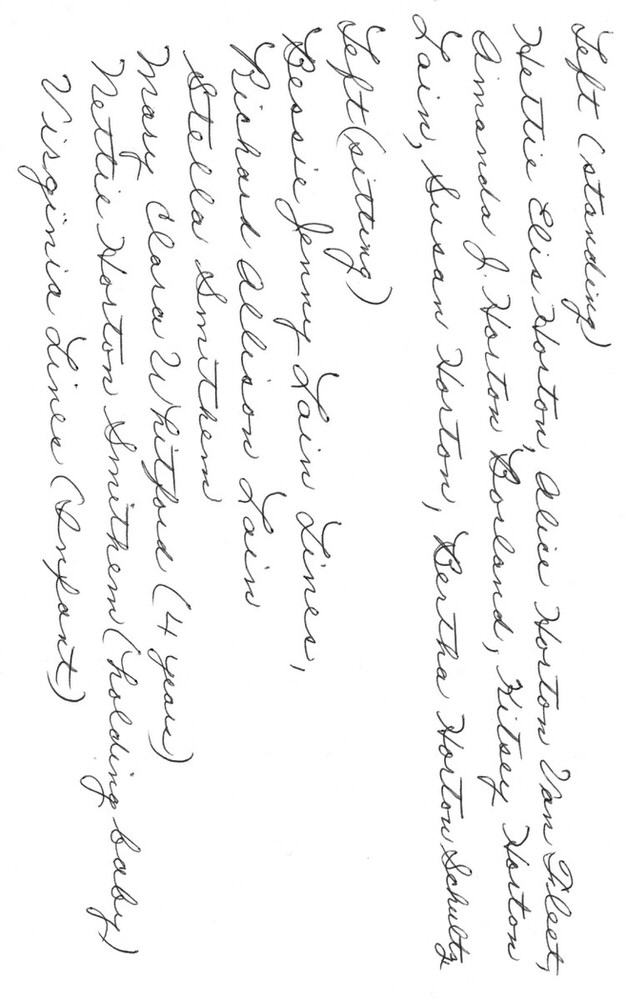 Left (standing)
Hettie Elis Horton, Alice Horton Van Fleet,
Amanda J. Horton Borland, Kitsey Horton
Lain, Susan Horton, Bertha Horton Schultz
Left (sitting)
Bessie Jenny Lain Lines,
Richard Allison Lain
Stella Smithem
Mary Clara Whitford (4 years)
Nettie Horton Smithem (holding baby)
Virginia Lines (Infant)